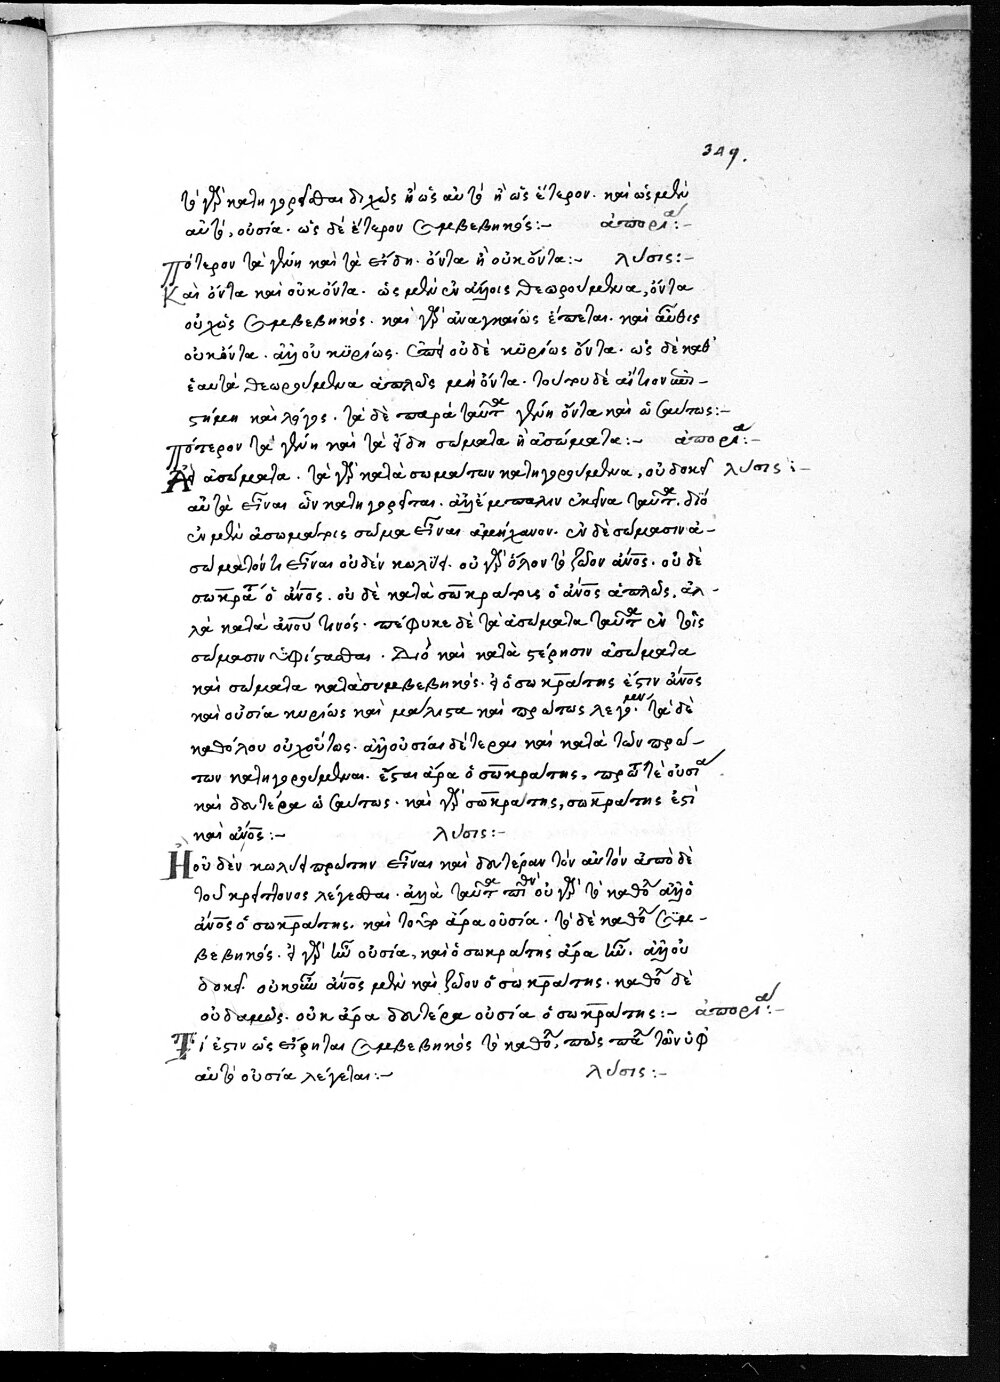 349.
τὸ γὰρ κατηγορεῖσθαι διχῶς ἢ ὡς αὐτὸ ἢ ὡς ἕτερον. καὶ ὡς μὲν
αὐτὸ, οὐσία. ὡς δὲ ἕτερον συμβεβηκός:~ ἀπορία:~
Πότερον τὰ γένη καὶ τὰ εἴδη. ὄντα ἢ οὐκ ὄντα:~ λύσις:~
Καὶ ὄντα καὶ οὐκ ὄντα. ὡς μὲν ἐν ἄλλοις θεωρούμενα, ὄντα
οὐχ ὡς συμβεβηκός. καὶ γὰρ ἀναγκαίως ἕπεται. καὶ αὖθις
οὐκ ὄντα. ἀλλ' οὐ κυρίως. οὐδὲ κυρίως ὄντα. ὡς δὲ καθ'
ἑαυτὰ θεωρούμενα ἁπλῶς μὴ ὄντα. τούτου δὲ αἴτιον ἐπι-
στήμη καὶ λόγος. τὰ δὲ παρὰ ταῦτα γένη ὄντα καὶ ὡσαύτως:~
Πότερον τὰ γένη καὶ τὰ εἴδη σώματα ἢ ἀσώματα:~ ἀπορία:~
ἀσώματα. τὰ γὰρ κατὰ σωμάτων κατηγορούμενα, οὐ δοκεῖ λύσις:~
αὐτὰ εἶναι ὧν κατηγορεῖται. ἀλλ' ἔμπαλιν ἐκεῖνα ταῦτα. διὸ
ἐν μὲν ἀσωμάτοις σῶμα εἶναι ἀμήχανον. ἐν δὲ σώμασιν ἀ-
σώματόν τι εἶναι οὐδὲν κωλύει. οὐ γὰρ ὅλον τὸ ζῶον ἄνος. οὐδὲ
σωκρατ ὁ ἄνος. οὐδὲ κατὰ σωκράτους ὁ ἄνος ἁπλῶς. ἀλ-
λὰ κατὰ ἀνου τινός. πέφυκε δὲ τὰ ἀσώματα ταῦτα ἐν τοῖς
σώμασιν ὑφίστασθαι. Διὸ καὶ κατὰ στέρησιν ἀσώματα
καὶ σώματα κατὰ συμβεβηκός. εἰ ὁ σωκράτης ἐστὶν ἄνος
καὶ οὐσία κυρίως καὶ μάλιστα καὶ πρώτως λεγομεν. τὰ δὲ
καθόλου οὐχ οὕτως. ἀλλ' οὐσίαι δεύτεραι καὶ κατὰ τῶν πρώ-
των κατηγορούμεναι. ἔσται ἄρα ὁ σωκράτης, πρώτη τὲ οὐσία
καὶ δευτέρα ὡσαύτως. καὶ γὰρ σωκράτης, σωκράτης ἐστὶ
καὶ ἄνος:~ λύσις:~
Ἢ οὐδὲν κωλύει πρώτην εἶναι καὶ δευτέραν τὸν αὐτόν ἀπὸ δὲ
τοῦ κρείττονος λέγεσθαι. ἀλλὰ ταῦτα οὐ γὰρ τὸ καθὸ ἀλλ' ὁ
ἄνος ὁ σωκράτης. καὶ τοῦτο ἄρα οὐσία. τὸ δὲ καθὸ συμ-
βεβηκός. εἰ γὰρ οὐσία, καὶ ὁ σωκράτης ἄρα. ἀλλ' οὐ
δοκεῖ. οὐκοῦν ἄνος μὲν καὶ ζῶον ὁ σωκράτης. καθὸ δὲ
οὐδαμῶς. οὐκ ἄρα δευτέρα οὐσία ὁ σωκράτης:~ ἀπορία:~
Τί ἐστιν ὡς εἴρηται συμβεβηκὸς τὸ καθὸ, πῶς τῶν ὑφ'
αὑτὸ οὐσία λέγεται:~ λύσις:~